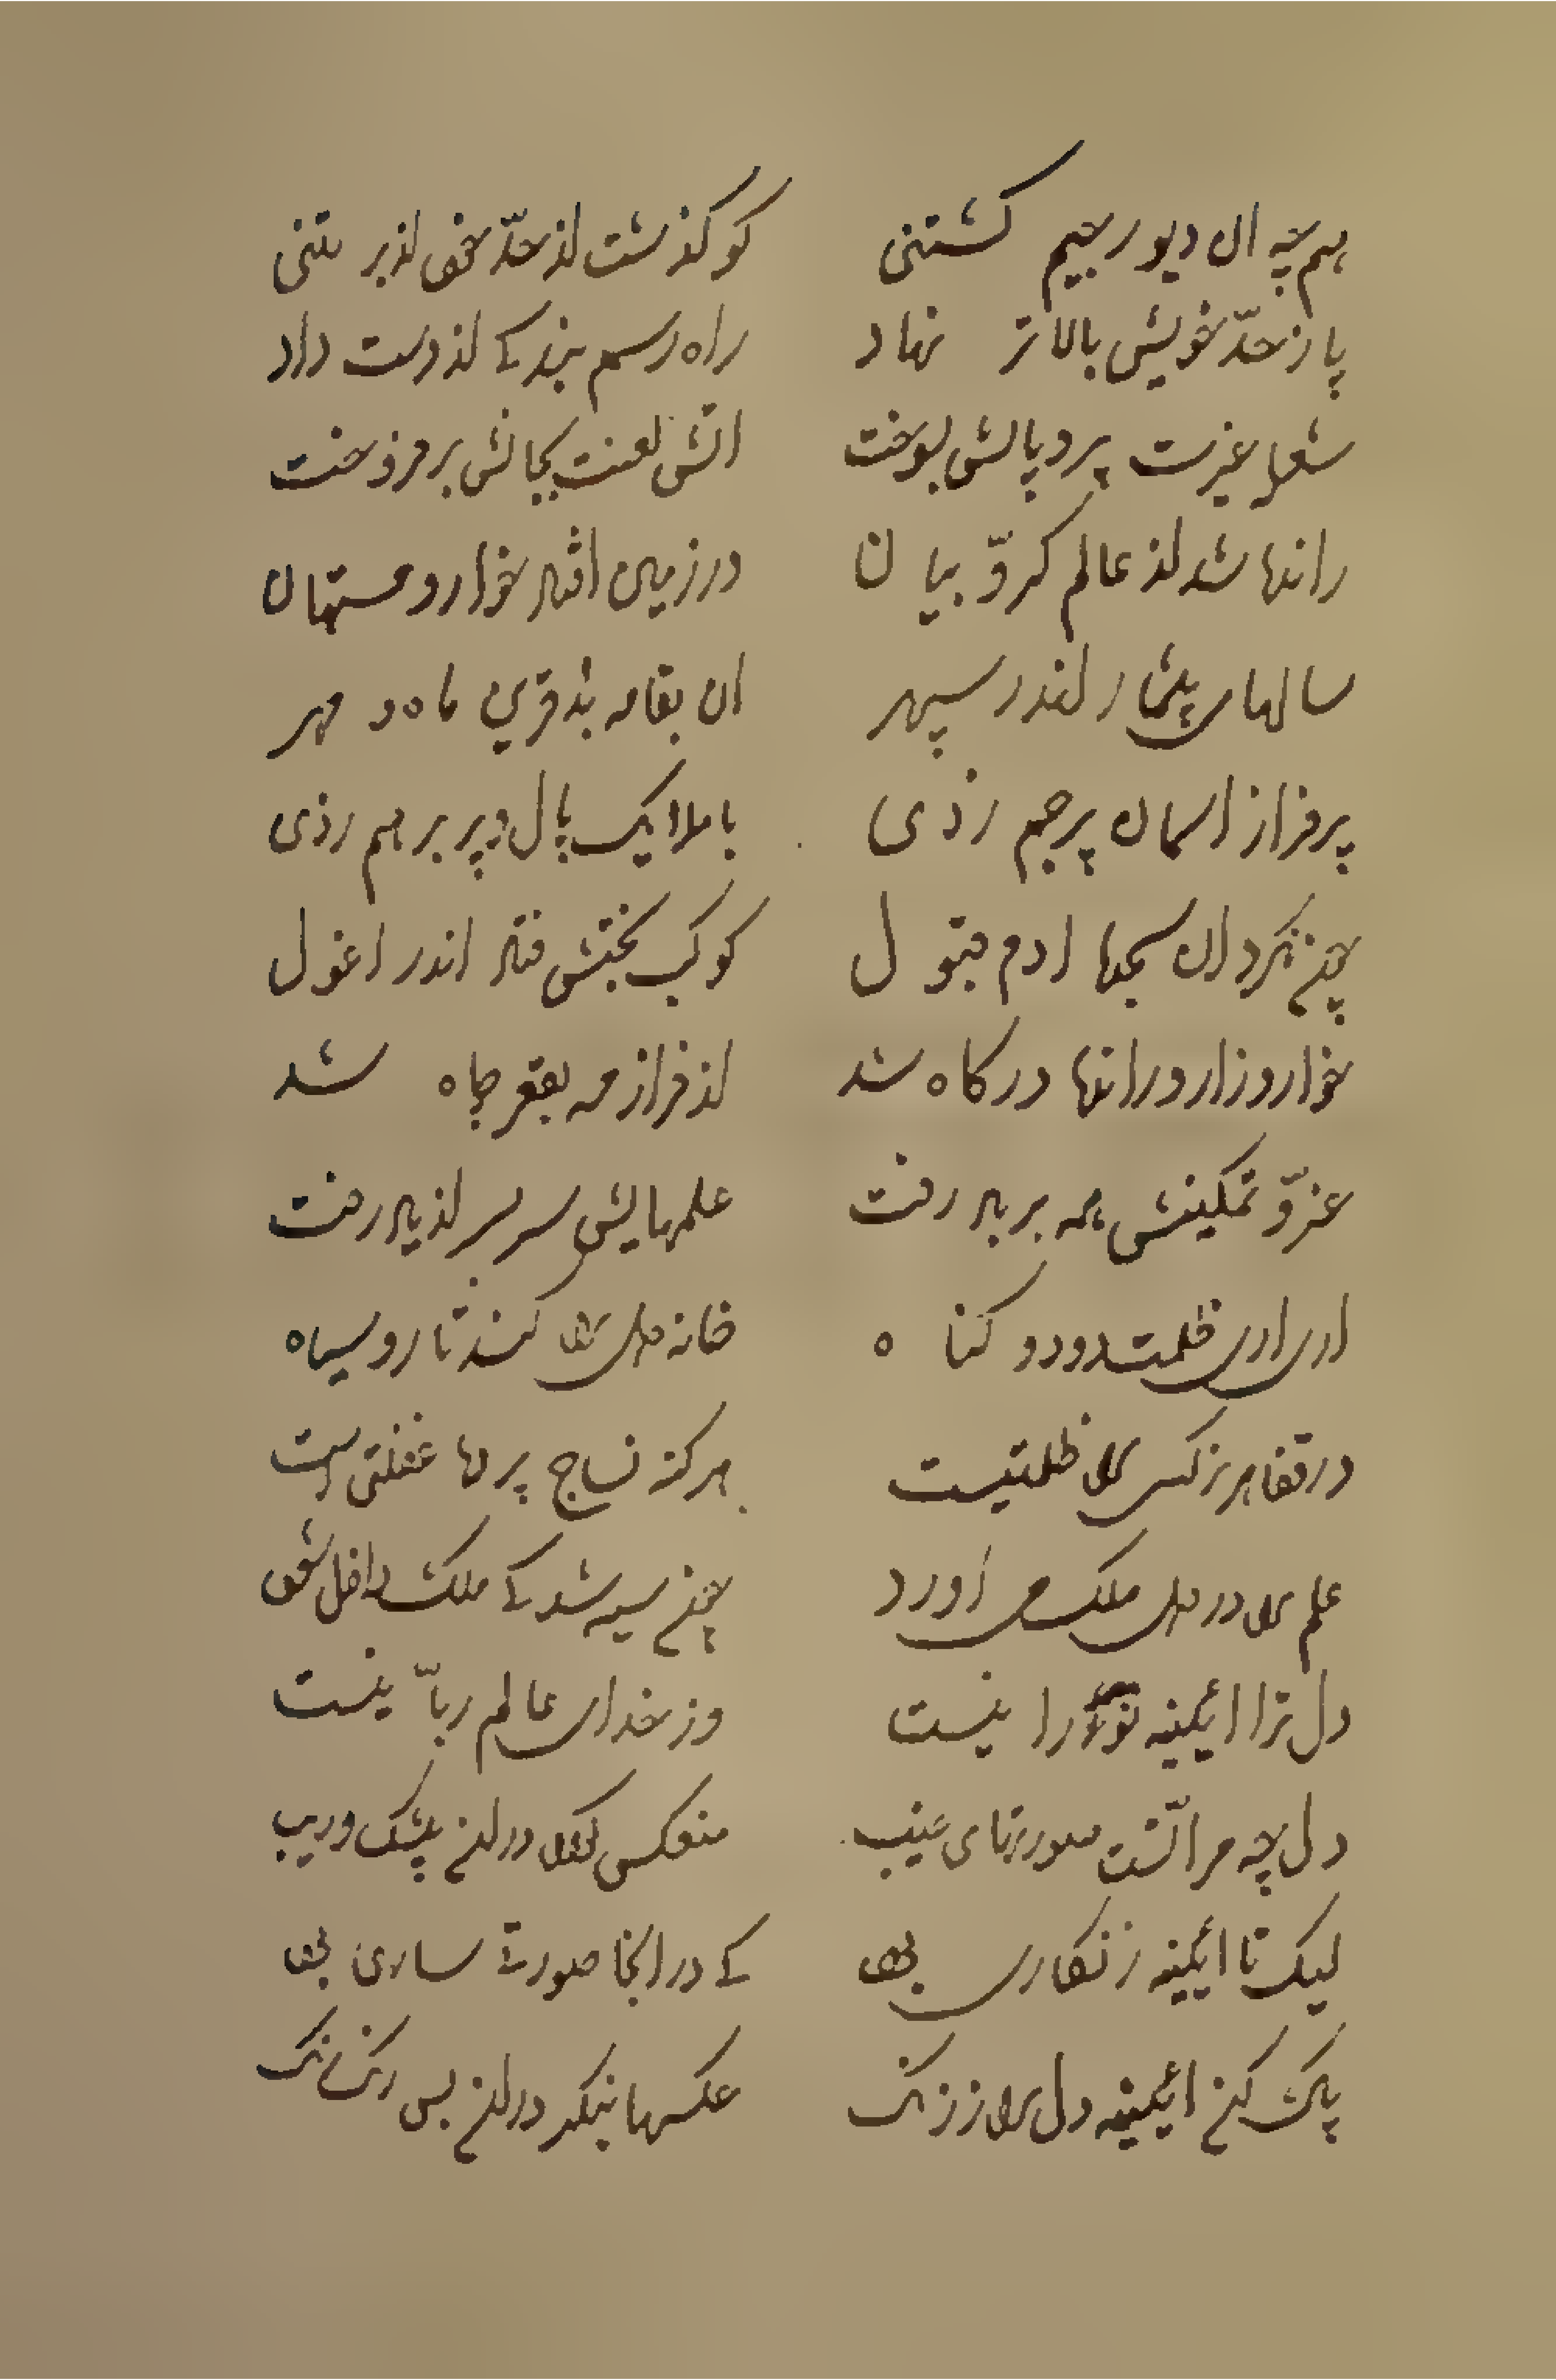 همچه ان دیو رجیم کشتنی کو کذشت از حدّ خود از بر تنی
پا ز حدّ خویش بالاتر نهاد راه رسم بندکے از دست داد
شعله غیرت پر و بالش بسوخت اتش لعنت بجانش برفروخت
رانده شد از عالم کرّوبیان در زمین افتاد خوار و مستهان
سالهای بیشمار اندر سپهر ان بقامه بد قرین ماه و مهر
بر فراز اسمان پرچم زدی با ملایک بال و پر بر هم زدی
چون نکرد ان سجده ادم قبول کوکب بختش فتاد اندر افول
خوار و زار و رانده درکاه شد از فراز مه بقعر چاه شد
عزّ و تمکینش همه بر باد رفت علمهایش سر بسر از یاد رفت
اری اری ظلمت دود و کناه خانه دل را کند تار و سیاه
در قفا هر نرکسی را ظلمتیست هر کنه نساج پرده غفلتی است
علم را در دل ملک می اورد چون سیه شد کے ملک داخل شود
دل ترا ائینه نور را نیست وز خدای عالم ربّانیست
دل چه مراتست صورتهای غیب منعکس کردد در ان بیشک و ریب
لیک تا ائینه زنکاری بود کے در انجا صورتے ساری بود
پاک کن ائینه دل را ز زنک عکسها بنکر در ان بس رنک رنک